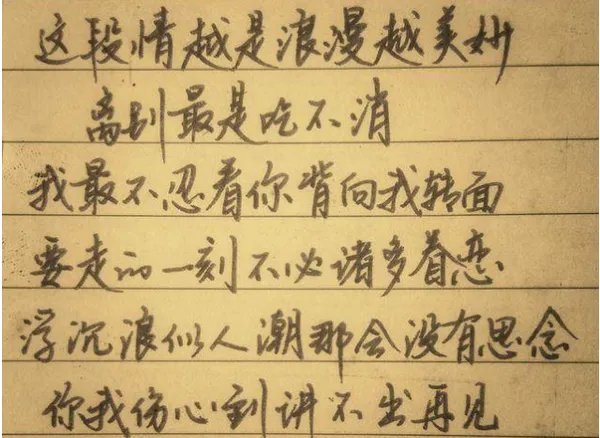 这段情越是浪漫越美妙
离别最是吃不消
我最不忍看你背向我转面
要走的一刻不必诸多眷恋
浮沉浪似人潮那会没有思念
你我伤心到讲不出再见